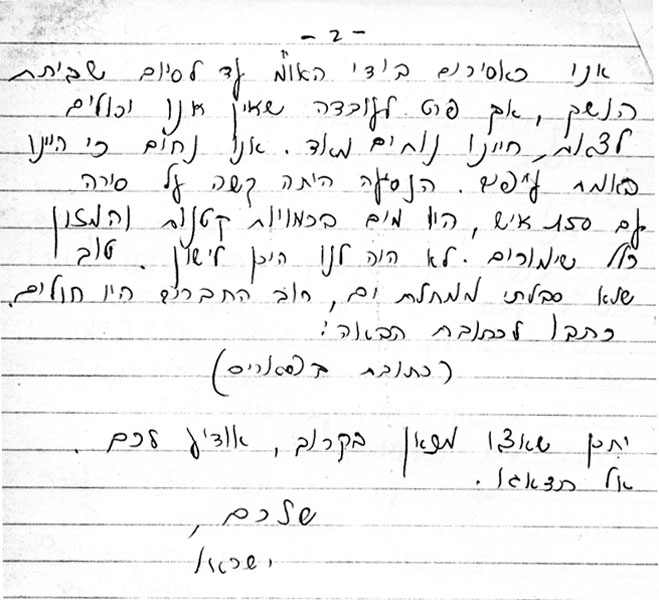 - 2 -
אנו כאסירים בידי האו"מ עד לסיום שביתת
הנשק, אך פרט לעובדה שאין אנו יכולים
לצאת, חיינו נוחים מאוד. אנו נחים כי היינו
באמת עיפים. הנסיעה היתה קשה על סירה
עם 150 איש, היו מים בכמויות קטנות והמזון
כלל שימורים. לא היה לנו היכן לישון. טוב
שלא סבלתי ממחלת ים, רוב החברים היו חולים.
כתבו לכתובת הבאה:
(כתובת
יתכן שאצא מכאן בקרוב, אודיע לכם.
אל תדאגו.
שלכם,
ישראל